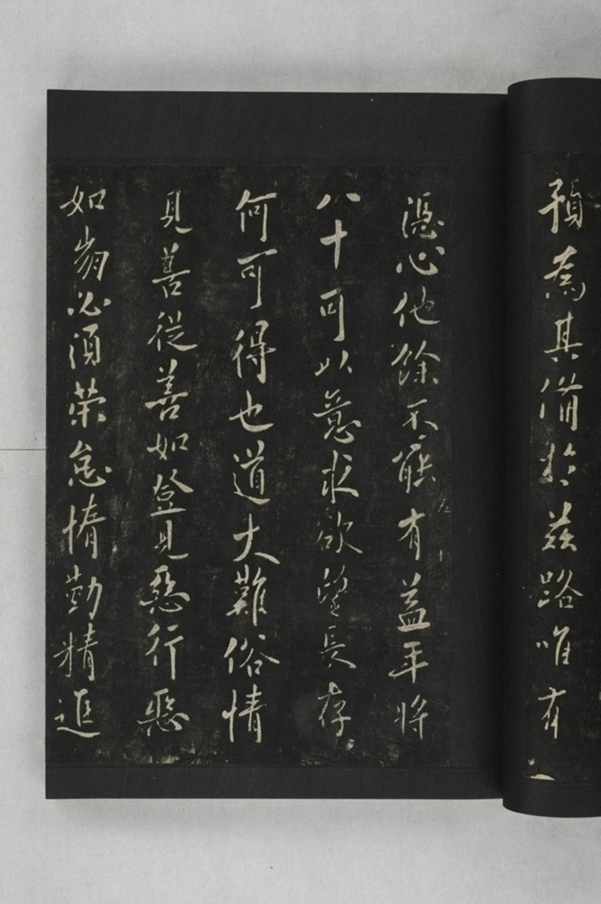 預為其備於茲路唯有
憑心他餘不能有益年將
八十可以意求欲望長存
何可得也道大難俗情
見善從善如登見惡行惡
如崩必須策怠惰勤精進